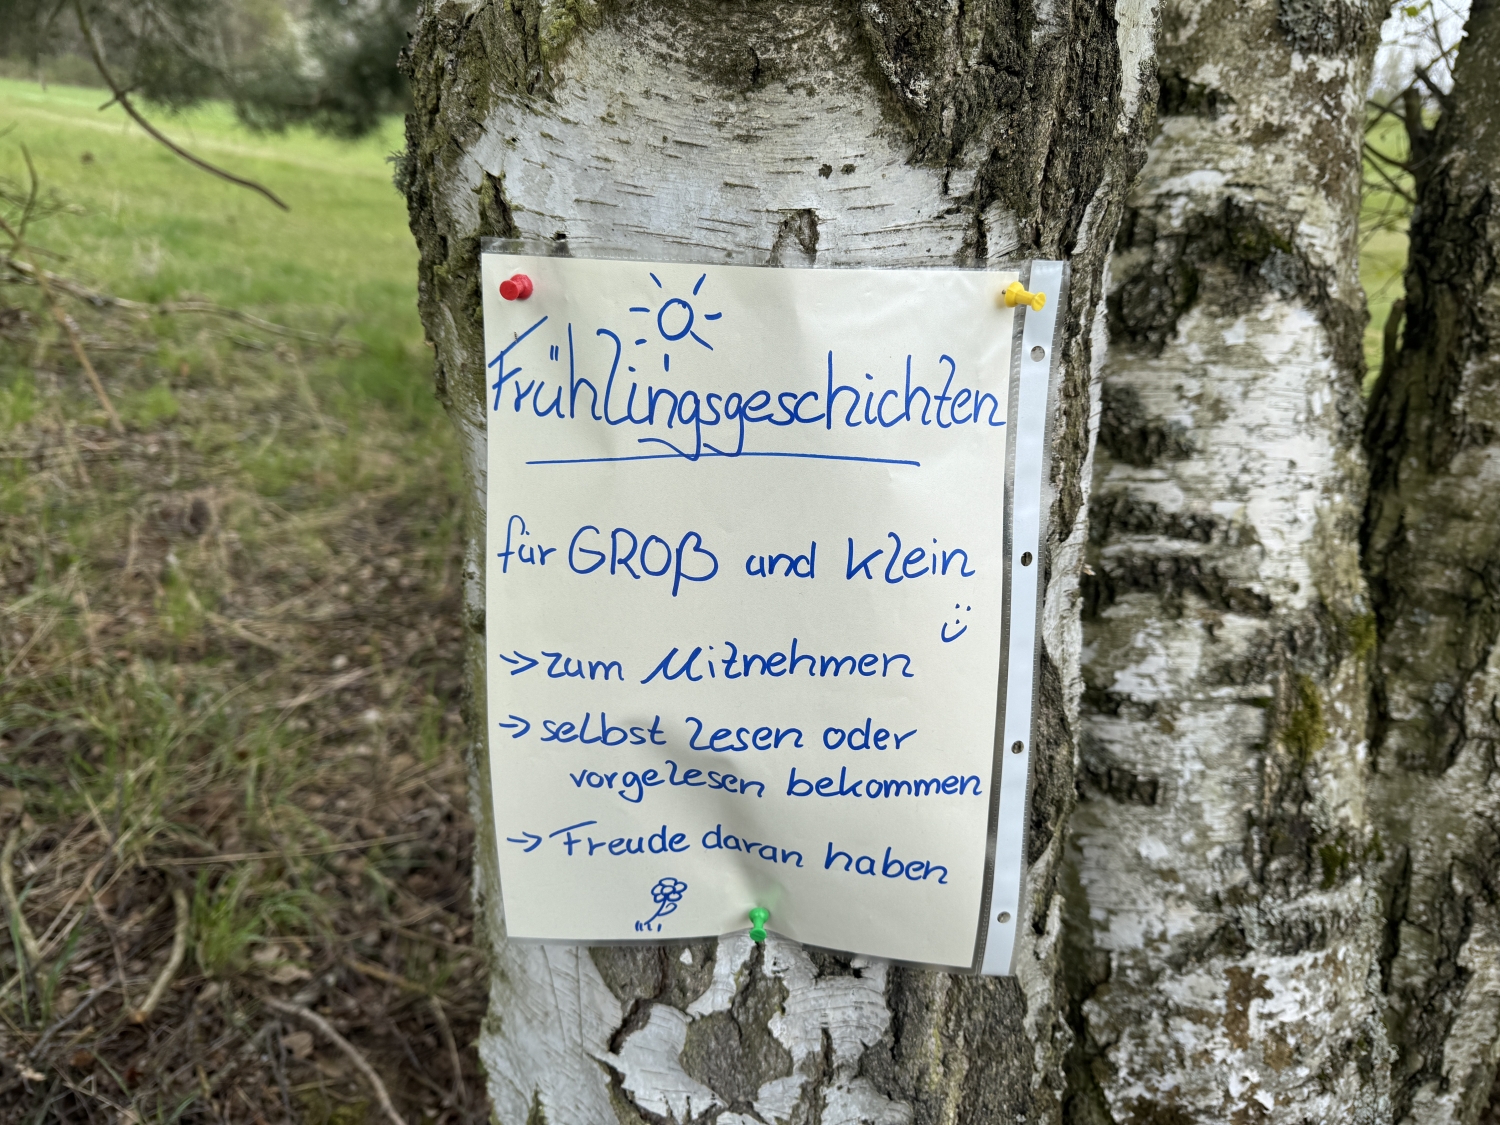 Frühlingsgeschichten
für GROß und klein
→ zum Mitnehmen
→ selbst lesen oder
vorgelesen bekommen
→ Freude daran haben